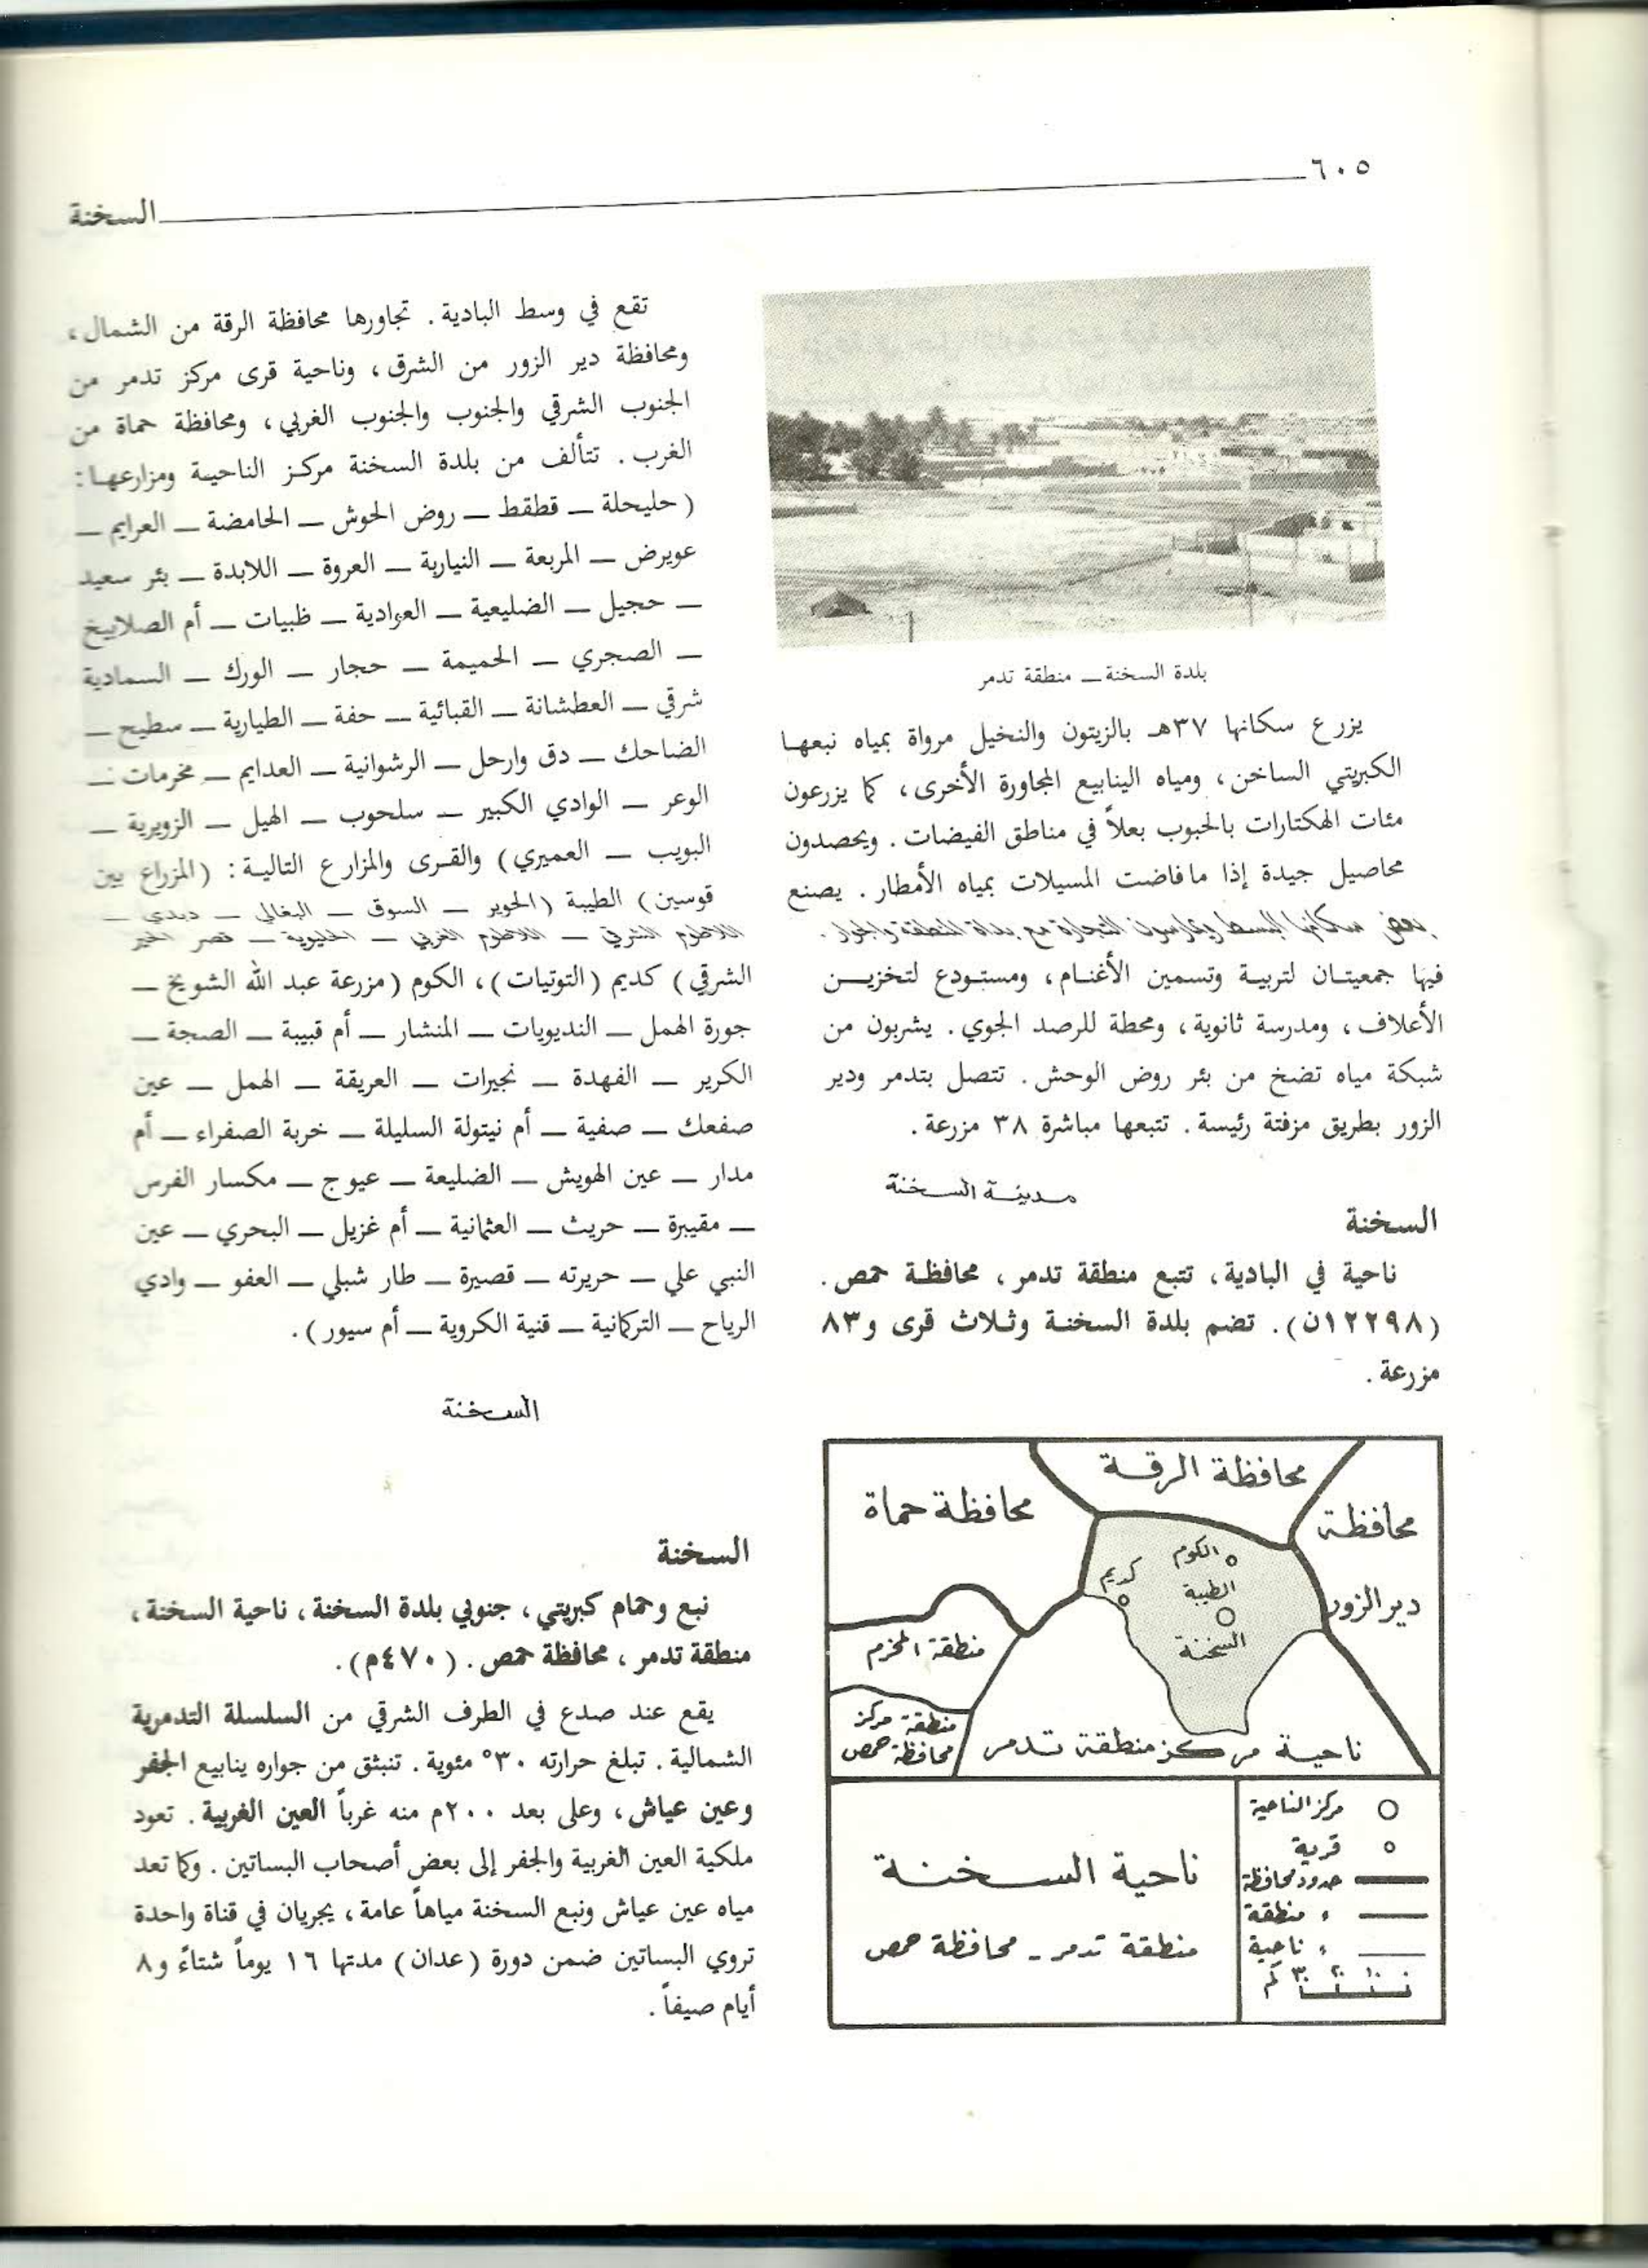 ٦٠٥
السخنة
بلدة السخنة ــ منطقة تدمر
يزرع سكانها ٣٧هـ بالزيتون والنخيل مرواة بمياه نبعها
الكبريتي الساخن، ومياه الينابيع المجاورة الأخرى، كما يزرعون
مئات الهكتارات بالحبوب بعلاً في مناطق الفيضات. ويحصدون
محاصيل جيدة إذا ما فاضت المسيلات بمياه الأمطار. يصنع
بعض سكانها البسط ويمارسون التجارة مع بداة المنطقة والجوار.
فيها جمعيتان لتربية وتسمين الأغنام، ومستودع لتخزين
الأعلاف، ومدرسة ثانوية، ومحطة للرصد الجوي. يشربون من
شبكة مياه تضخ من بئر روض الوحش. تتصل بتدمر ودير
الزور بطريق مزفتة رئيسة. تتبعها مباشرة ٣٨ مزرعة.
مدينة السخنة
السخنة
ناحية في البادية، تتبع منطقة تدمر، محافظة حمص.
(١٢٢٩٨ن). تضم بلدة السخنة وثلاث قرى و٨٣
مزرعة.
محافظة الرقة
محافظة حماة
محافظة
دير الزور
الكوم
كديم
الطيبة
السخنة
منطقة المخرم
منطقة مركز
محافظة حمص
ناحية مركز منطقة تدمر
مركز الناحية
قرية
حدود محافظة
، منطقة
، ناحية
٠ ١٠ ٢٠ ٣٠ كم
ناحية السخنة
منطقة تدمر - محافظة حمص
تقع في وسط البادية. تجاورها محافظة الرقة من الشمال،
ومحافظة دير الزور من الشرق، وناحية قرى مركز تدمر من
الجنوب الشرقي والجنوب والجنوب الغربي، ومحافظة حماة من
الغرب. تتألف من بلدة السخنة مركز الناحية ومزارعها:
(حليحلة ــ قطقط ــ روض الحوش ــ الحامضة ــ العرايم ــ
عويرض ــ المربعة ــ النيارية ــ العروة ــ اللابدة ــ بئر سعيد
ــ حجيل ــ الضليعية ــ العوادية ــ ظبيات ــ أم الصلابيخ
ــ الصجري ــ الحميمة ــ حجار ــ الورك ــ السمادية
شرقي ــ العطشانة ــ القبائية ــ حفة ــ الطيارية ــ سطيح ــ
الضاحك ــ دق وارحل ــ الرشوانية ــ العدايم ــ مخرمات ــ
الوعر ــ الوادي الكبير ــ سلحوب ــ الهيل ــ الزويرية ــ
البويب ــ العميري) والقرى والمزارع التالية: (المزراع بين
قوسين) الطيبة (الحوير ــ السوق ــ البغالي ــ ديدي ــ
اللاطوم الشرقي ــ اللاطوم الغربي ــ الخليوية ــ قصر الحير
الشرقي) كديم (التوتيات)، الكوم (مزرعة عبد الله الشويخ ــ
جورة الهمل ــ النديويات ــ المنشار ــ أم قبيبة ــ الصجة ــ
الكرير ــ الفهدة ــ نجيرات ــ العريقة ــ الهمل ــ عين
صفعك ــ صفية ــ أم نيتولة السليلة ــ خربة الصفراء ــ أم
مدار ــ عين الهويش ــ الضليعة ــ عيوج ــ مكسار الفرس
ــ مقيبرة ــ حريث ــ العثمانية ــ أم غزيل ــ البحري ــ عين
النبي علي ــ حريرته ــ قصيرة ــ طار شبلي ــ العفو ــ وادي
الرياح ــ التركمانية ــ قنية الكروية ــ أم سيور).
السخنة
السخنة
نبع وحمام كبريتي، جنوبي بلدة السخنة، ناحية السخنة،
منطقة تدمر، محافظة حمص. (٤٧٠م).
يقع عند صدع في الطرف الشرقي من السلسلة التدمرية
الشمالية. تبلغ حرارته ٣٠° مئوية. تنبثق من جواره ينابيع الجفر
وعين عياش، وعلى بعد ٢٠٠م منه غرباً العين الغربية. تعود
ملكية العين الغربية والجفر إلى بعض أصحاب البساتين. وكما تعد
مياه عين عياش ونبع السخنة مياهاً عامة، يجريان في قناة واحدة
تروي البساتين ضمن دورة (عدان) مدتها ١٦ يوماً شتاءً و٨
أيام صيفاً.